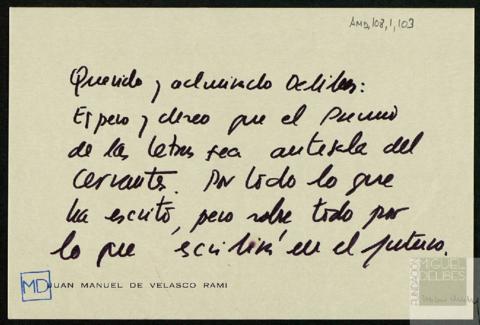 AMD,108,1,103
Querido y admirado Delibes:
Espero y deseo que el Premio
de las Letras sea antesala del
Cervantes. Por todo lo que
ha escrito, pero sobre todo por
lo que escribirá en el futuro.
MD
JUAN MANUEL DE VELASCO RAMI
FUNDACIÓN
MIGUEL
DELIBES